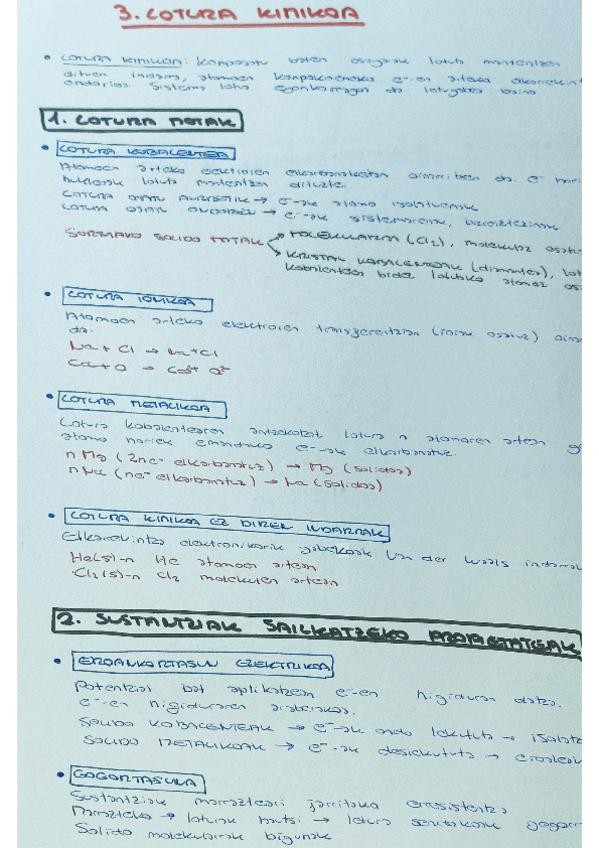 3. LOTURA KIMIKOA
• LOTURA KIMIKOA: Konposatu baten osagaiak lotuta mantentzen
dituen indarra, atomoen konpakoeneko e⁻-en arteko elkarrekin
ondorioz sistema lotua egonkorragoa da lotugabea baino.
1. LOTURA MOTAK
• LOTURA KOBALENTEA
Atomoen arteko elektroien elkarbanaketan oinarritzen da. e⁻
nukleoak lotuta mantentzen dituzte.
LOTURA → e⁻-ak atomo isolatuenak
LOTURA → e⁻-ak sistemarena,
SORTUKO SOLIDO MOTAK → MOLEKULARRA (Cl₂), molekulaz
→ KRISTAL KOBALENTEAK (diamantea),
kobalenteen bidez lotutako atomoz
• LOTURA IONIKOA
Atomoen arteko elektroien transferentzian (ioiak osatuz)
da.
Na + Cl → Na⁺Cl
Ca + O → Ca²⁺ O²⁻
• LOTURA METALIKOA
Lotura kobalentearen antzekoa, lotura n atomoren artean
atomo horiek emandako e⁻-ak elkarbanatuz.
n Mg (2ne⁻ elkarbanatuz) → Mg (solidoa)
n Na (ne⁻ elkarbanatuz) → Na (solidoa)
• LOTURA KIMIKOA EZ DIREN INDARRAK
Elkarekintza elektronikorik gabekoak Van der Waals indarrak
He(s)-n He atomoen artean
Cl₂(s)-n Cl₂ molekulen artean
2. SUSTANTZIAK SAILKATZEKO PROPIETATEAK
• EROANKORTASUN ELEKTRIKOA
Potentzial bat aplikatzean e⁻-en higiduran datza.
e⁻-en higiduraren araberakoa.
SOLIDO KOBALENTEAK → e⁻-ak ondo lokalizatuta →
SOLIDO METALIKOAK → e⁻-ak deslekututa →
• GOGORTASUNA
Sustantziak marratzeari jarritako erresistentzia
Marrazteko → loturak hautsi → lotura sendoak
Solido molekularrak bigunak